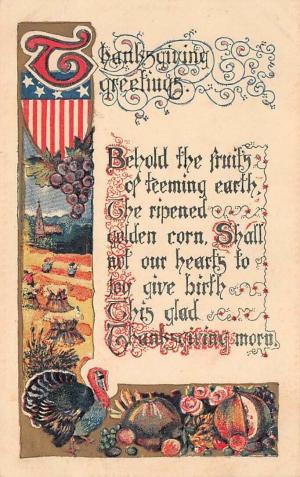 Thanksgiving
greetings.
Behold the fruits
of teeming earth,
The ripened
golden corn, Shall
not our hearts to
joy give birth
This glad
Thanksgiving morn.